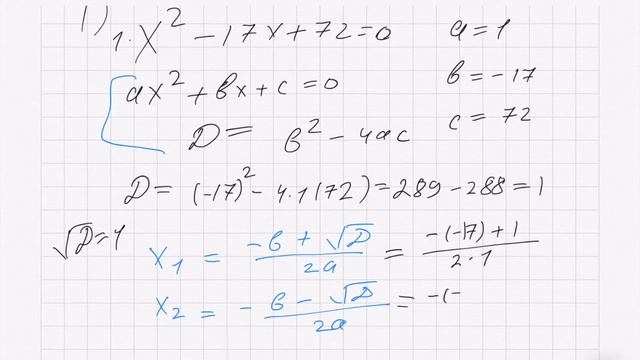 1) 1·x² - 17x + 72 = 0 a = 1
ax² + bx + c = 0 b = -17
D = b² - 4ac c = 72
D = (-17)² - 4·1(72) = 289 - 288 = 1
√D = 1 x₁ = (-b + √D)/2a = (-(-17) + 1)/2·1
x₂ = (-b - √D)/2a = -(-